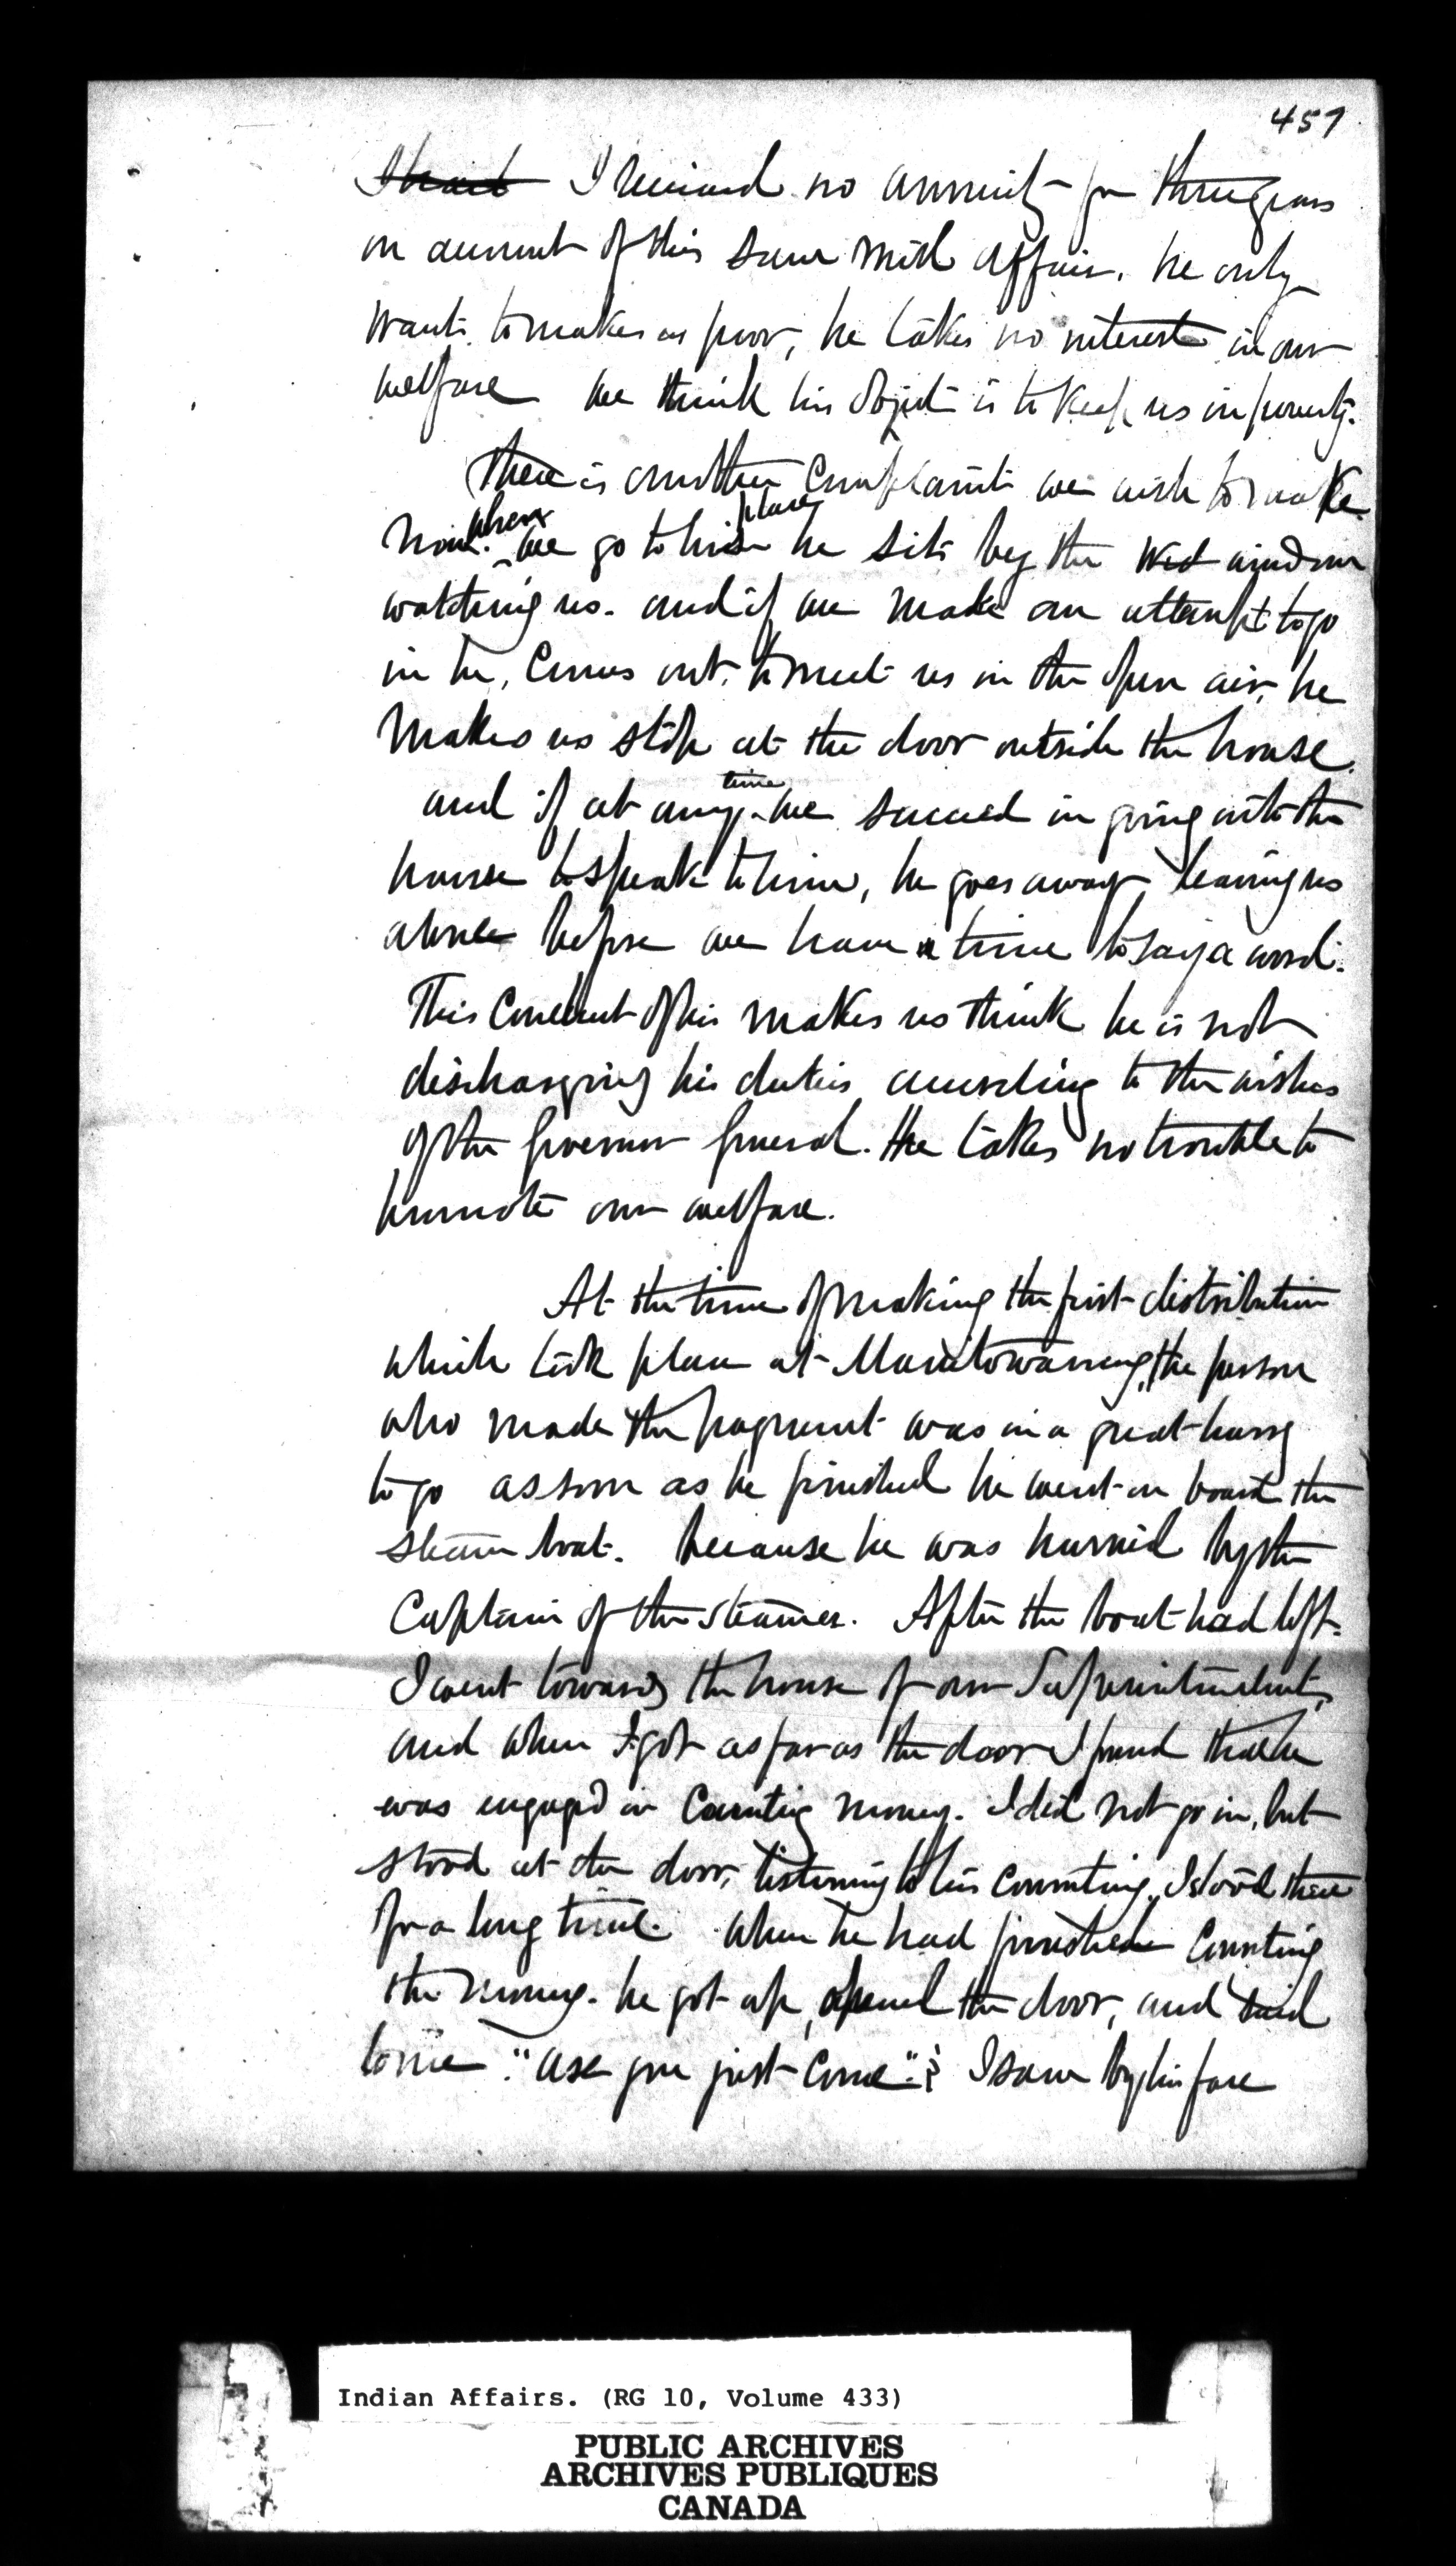 457
I received no annuity for three years
on account of this saw mill affair. he only
wants to make us poor, he takes no interest in our
welfare we think his object is to keep us in poverty.
There is another complaint we wish to make
now. when we go to his place he sits by the Wid window
watching us. and if we make an attempt to go
in he, comes out, to meet us in the open air, he
makes us stop at the door outside the house.
and if at any time we succeed in going into the
house to speak to him, he goes away leaving us
alone before we have a time to say a word.
This conduct of his makes us think he is not
discharging his duties according to the wishes
of the Governor General. He takes no trouble to
promote our welfare.
At the time of making the first distribution
which took place at Manitowaning, the person
who made the payment was in a great hurry
to go as soon as he finished he went on board the
steam boat. because he was hurried by the
Captain of the steamer. After the boat had left.
I went towards the house of our Superintendent,
and when I got as far as the door I found that he
was engaged in counting money. I did not go in, but
stood at the door, listening to his counting, I stood there
for a long time. When he had finished counting
the money. he got up, opened the door, and said
to me "are you just come"? I saw by his face
Indian Affairs. (RG 10, Volume 433)
PUBLIC ARCHIVES
ARCHIVES PUBLIQUES
CANADA